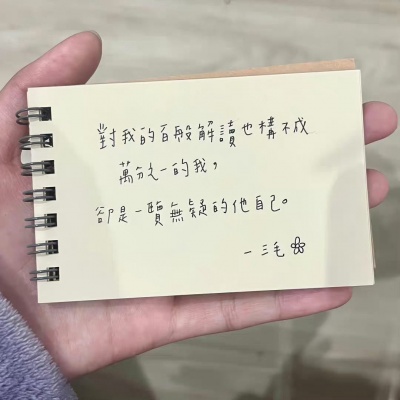 對我的百般解讀也構不成
萬分之一的我，
卻是一覽無疑的他自己。
－三毛